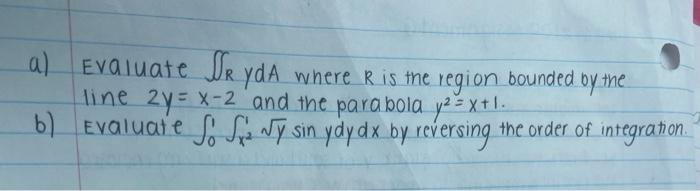 a) Evaluate ∬R ydA where R is the region bounded by the
line 2y = x-2 and the parabola y² = x+1.
b) Evaluate ∫₀¹ ∫ₓ²¹ √y sin ydydx by reversing the order of integration.